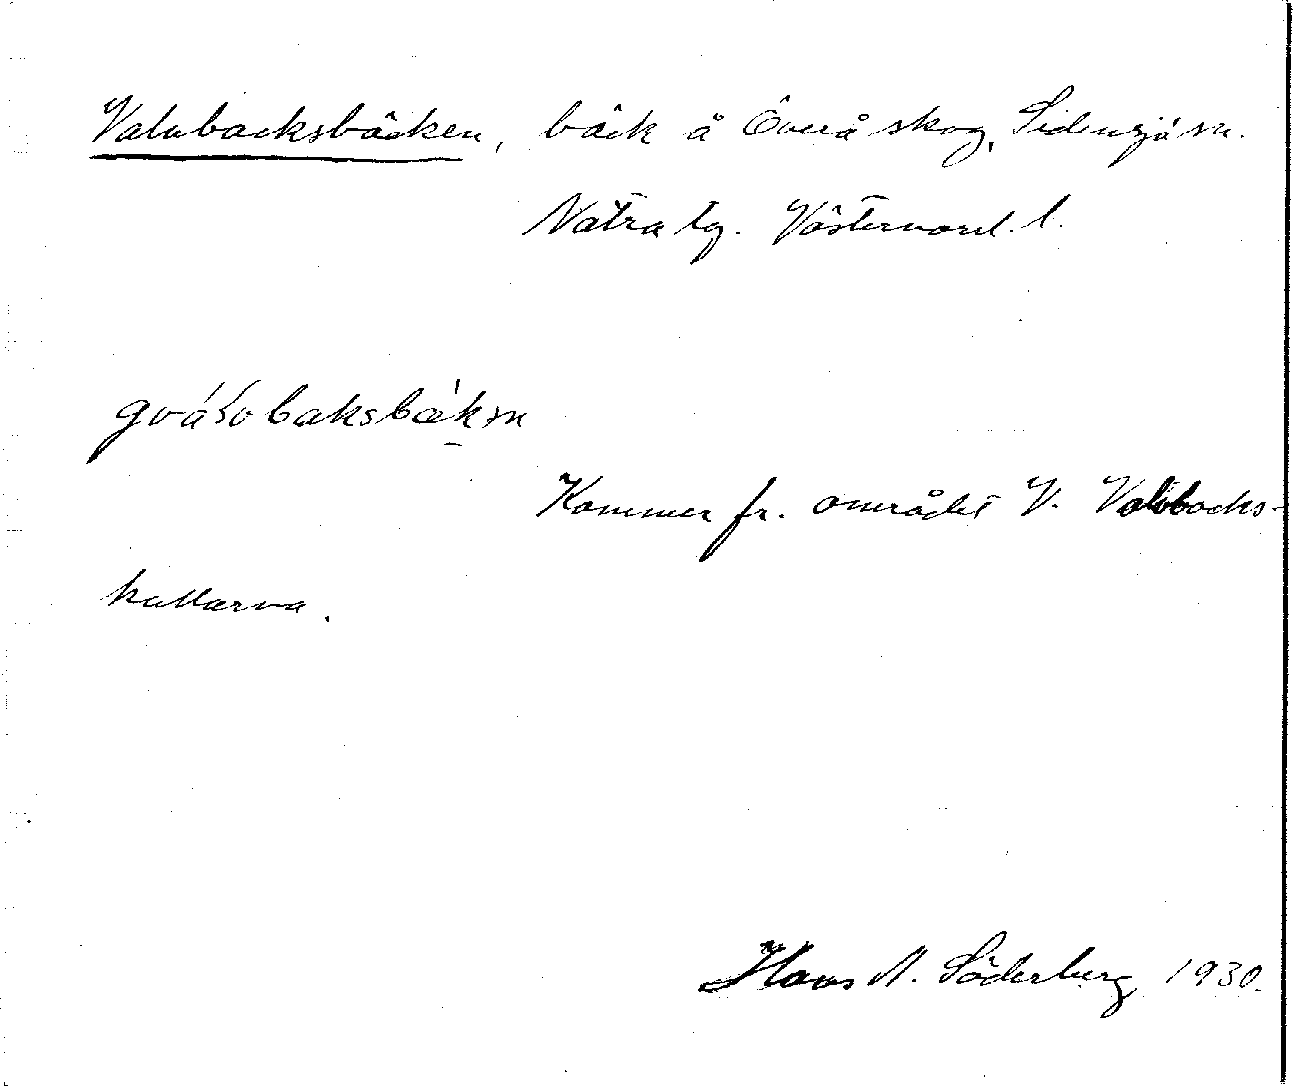 Valubacksbäcken, bäck å Överå skog, Sidensjö sn.
Nätra tg. Västernorrl. l.
Kommer fr. området V. Valubacks-
kullarna.
Hans A. Söderberg, 1930.